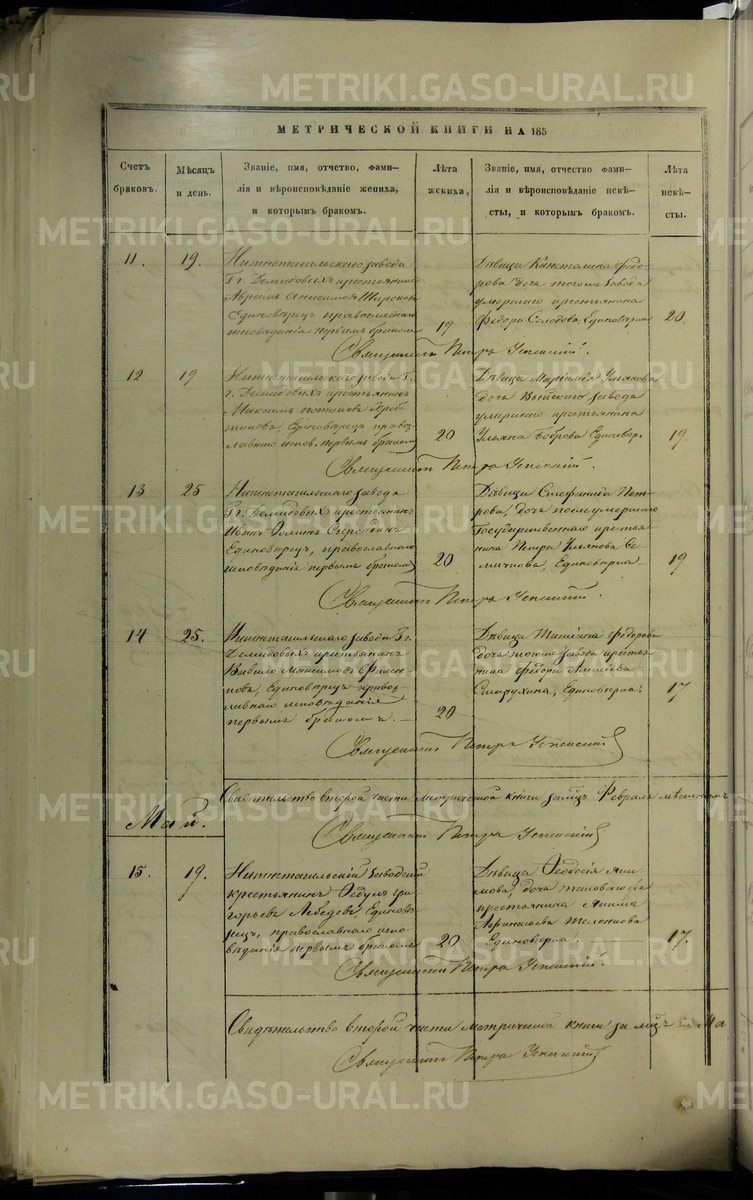 МЕТРИЧЕСКОЙ КНИГИ НА 185
Счетъ
браковъ.
Мѣсяцъ
и день.
Званіе, имя, отчетво, фами-
лія и вѣроисповѣданіе жениха,
и которымъ бракомъ.
Лѣта
жениха,
Званіе, имя, отчество фами-
лія и вѣроисповѣданіе невѣ-
сты, и которымъ бракомъ.
Лѣта
невѣ-
сты.
11.
19.
Нижнетагильскаго завода
Гг. Демидовыхъ крестьянинъ
Аврамъ Анисимовъ
Единовѣрецъ православнаго
исповѣданія первымъ бракомъ
19
Дѣвица Капиталина Федо-
рова дочь тогоже завода
умершаго крестьянина
Федора Солодова, Единовѣрка
20.
Священникъ Петръ Успенскій.
12
19
Нижнетагильскаго завода Г.
г. Демидовыхъ крестьянинъ
Максимъ Потаповъ
Единовѣрецъ правос
лавнаго испов. первымъ бракомъ
20
Дѣвица Ульянова
дочь Выйскаго завода
умершаго крестьянина
Ульяна Боброва Единовѣр.
19.
Священникъ Петръ Успенскій.
13
25
Нижнетагильскаго завода
Гг. Демидовыхъ крестьянинъ
Иванъ
Единовѣрецъ, православнаго
исповѣданія первымъ бракомъ
20
Дѣвица Стефанида Пет-
рова, дочь после умершаго
Государственнаго крестья
нина Петра Ульянова Се
Единовѣрка
19
Священникъ Петръ Успенскій.
14
25.
Нижнетагильскаго завода Гг.
Демидовыхъ крестьянинъ
Максимовъ
Единовѣрецъ правос
лавнаго исповѣданія
первымъ бракомъ. —
20
Дѣвица Татіана Федорова
дочь тогоже завода крестья
нина Федора Алексѣева
Старухина, Единовѣрка.
17
Священникъ Петръ Успенскій
Свидѣтельство второй части метрической книги за мцъ Февраль
Священникъ Петръ Успенскій
Май.
15.
19.
Нижнетагильскій заводскій
крестьянинъ Федулъ Гри
горьевъ Лебедевъ, Единовѣ
рецъ, православнаго испо
вѣданія первымъ бракомъ
20
Дѣвица Ѳеодосія Яки
мова, дочь
крестьянина Якима
Единовѣрка.
17.
Священникъ Петръ Успенскій.
Свидѣтельство второй части метрической книги за мцъ Ма
Священникъ Петръ Успенскій
METRIKI.GASO-URAL.RU